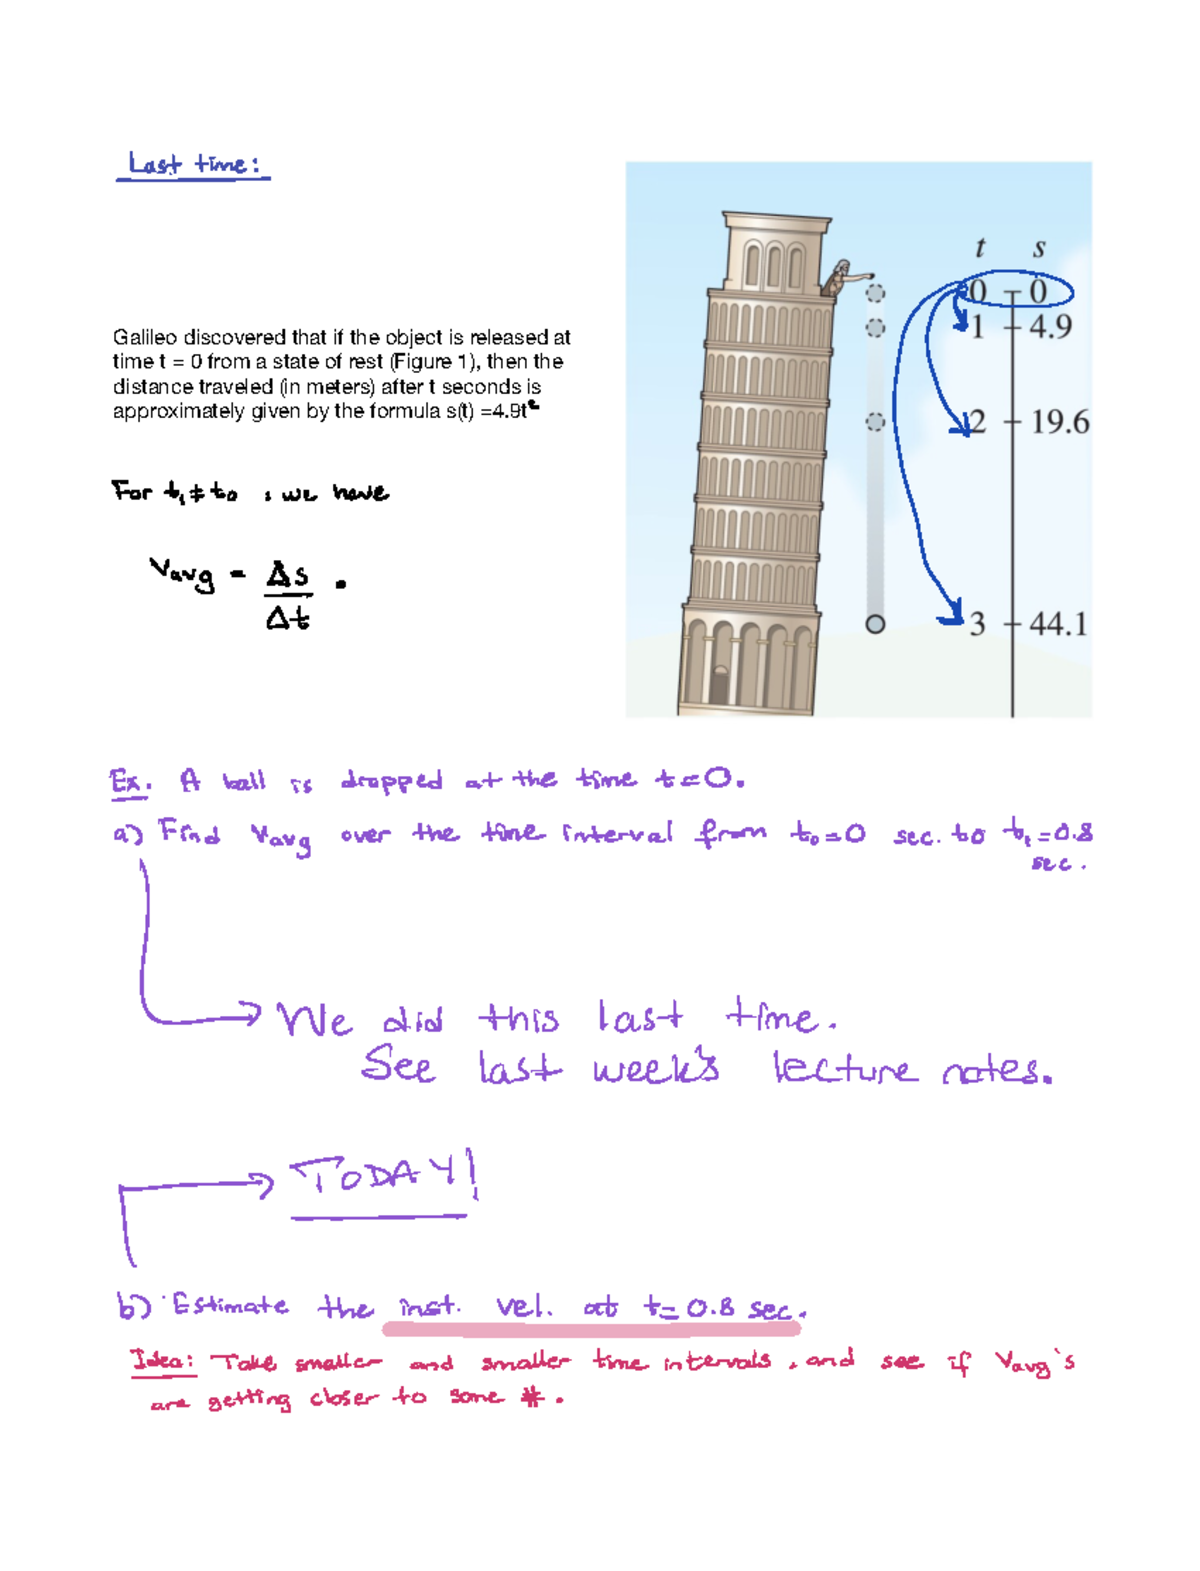 Last time:
t s
0 0
1 4.9
2 19.6
3 44.1
Galileo discovered that if the object is released at
time t = 0 from a state of rest (Figure 1), then the
distance traveled (in meters) after t seconds is
approximately given by the formula s(t) =4.9t²
For t₁ ≠ t₀ , we have
Vavg = Δs/Δt .
Ex. A ball is dropped at the time t=0.
a) Find Vavg over the time interval from t₀=0 sec. to t₁=0.8
sec.
We did this last time.
See last week's lecture notes.
TODAY!
b) Estimate the inst. vel. at t=0.8 sec.
Idea: Take smaller and smaller time intervals, and see if Vavg's
are getting closer to some #.